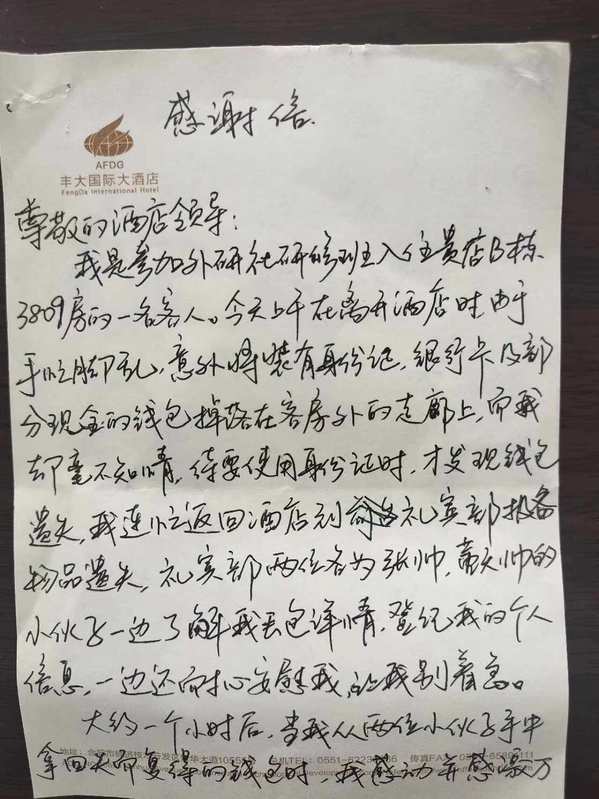 感谢信
AFDG
丰大国际大酒店
FengDa International Hotel
尊敬的酒店领导：
我是参加外研社研修班入住贵店B栋
3809房的一名客人。今天上午在离开酒店时由于
手忙脚乱，意外将装有身份证、银行卡及部
分现金的钱包掉落在客房外的走廊上，而我
却毫不知情，待要使用身份证时，才发现钱包
遗失，我连忙返回酒店到礼宾部报备
物品遗失，礼宾部两位名为张帅、帅的
小伙子一边了解我丢包详情，登记我的个人
信息，一边还耐心安慰我，让我别着急。
大约一个小时后，当我从两位小伙子手中
拿回失而复得的钱包时，我感动并感激万